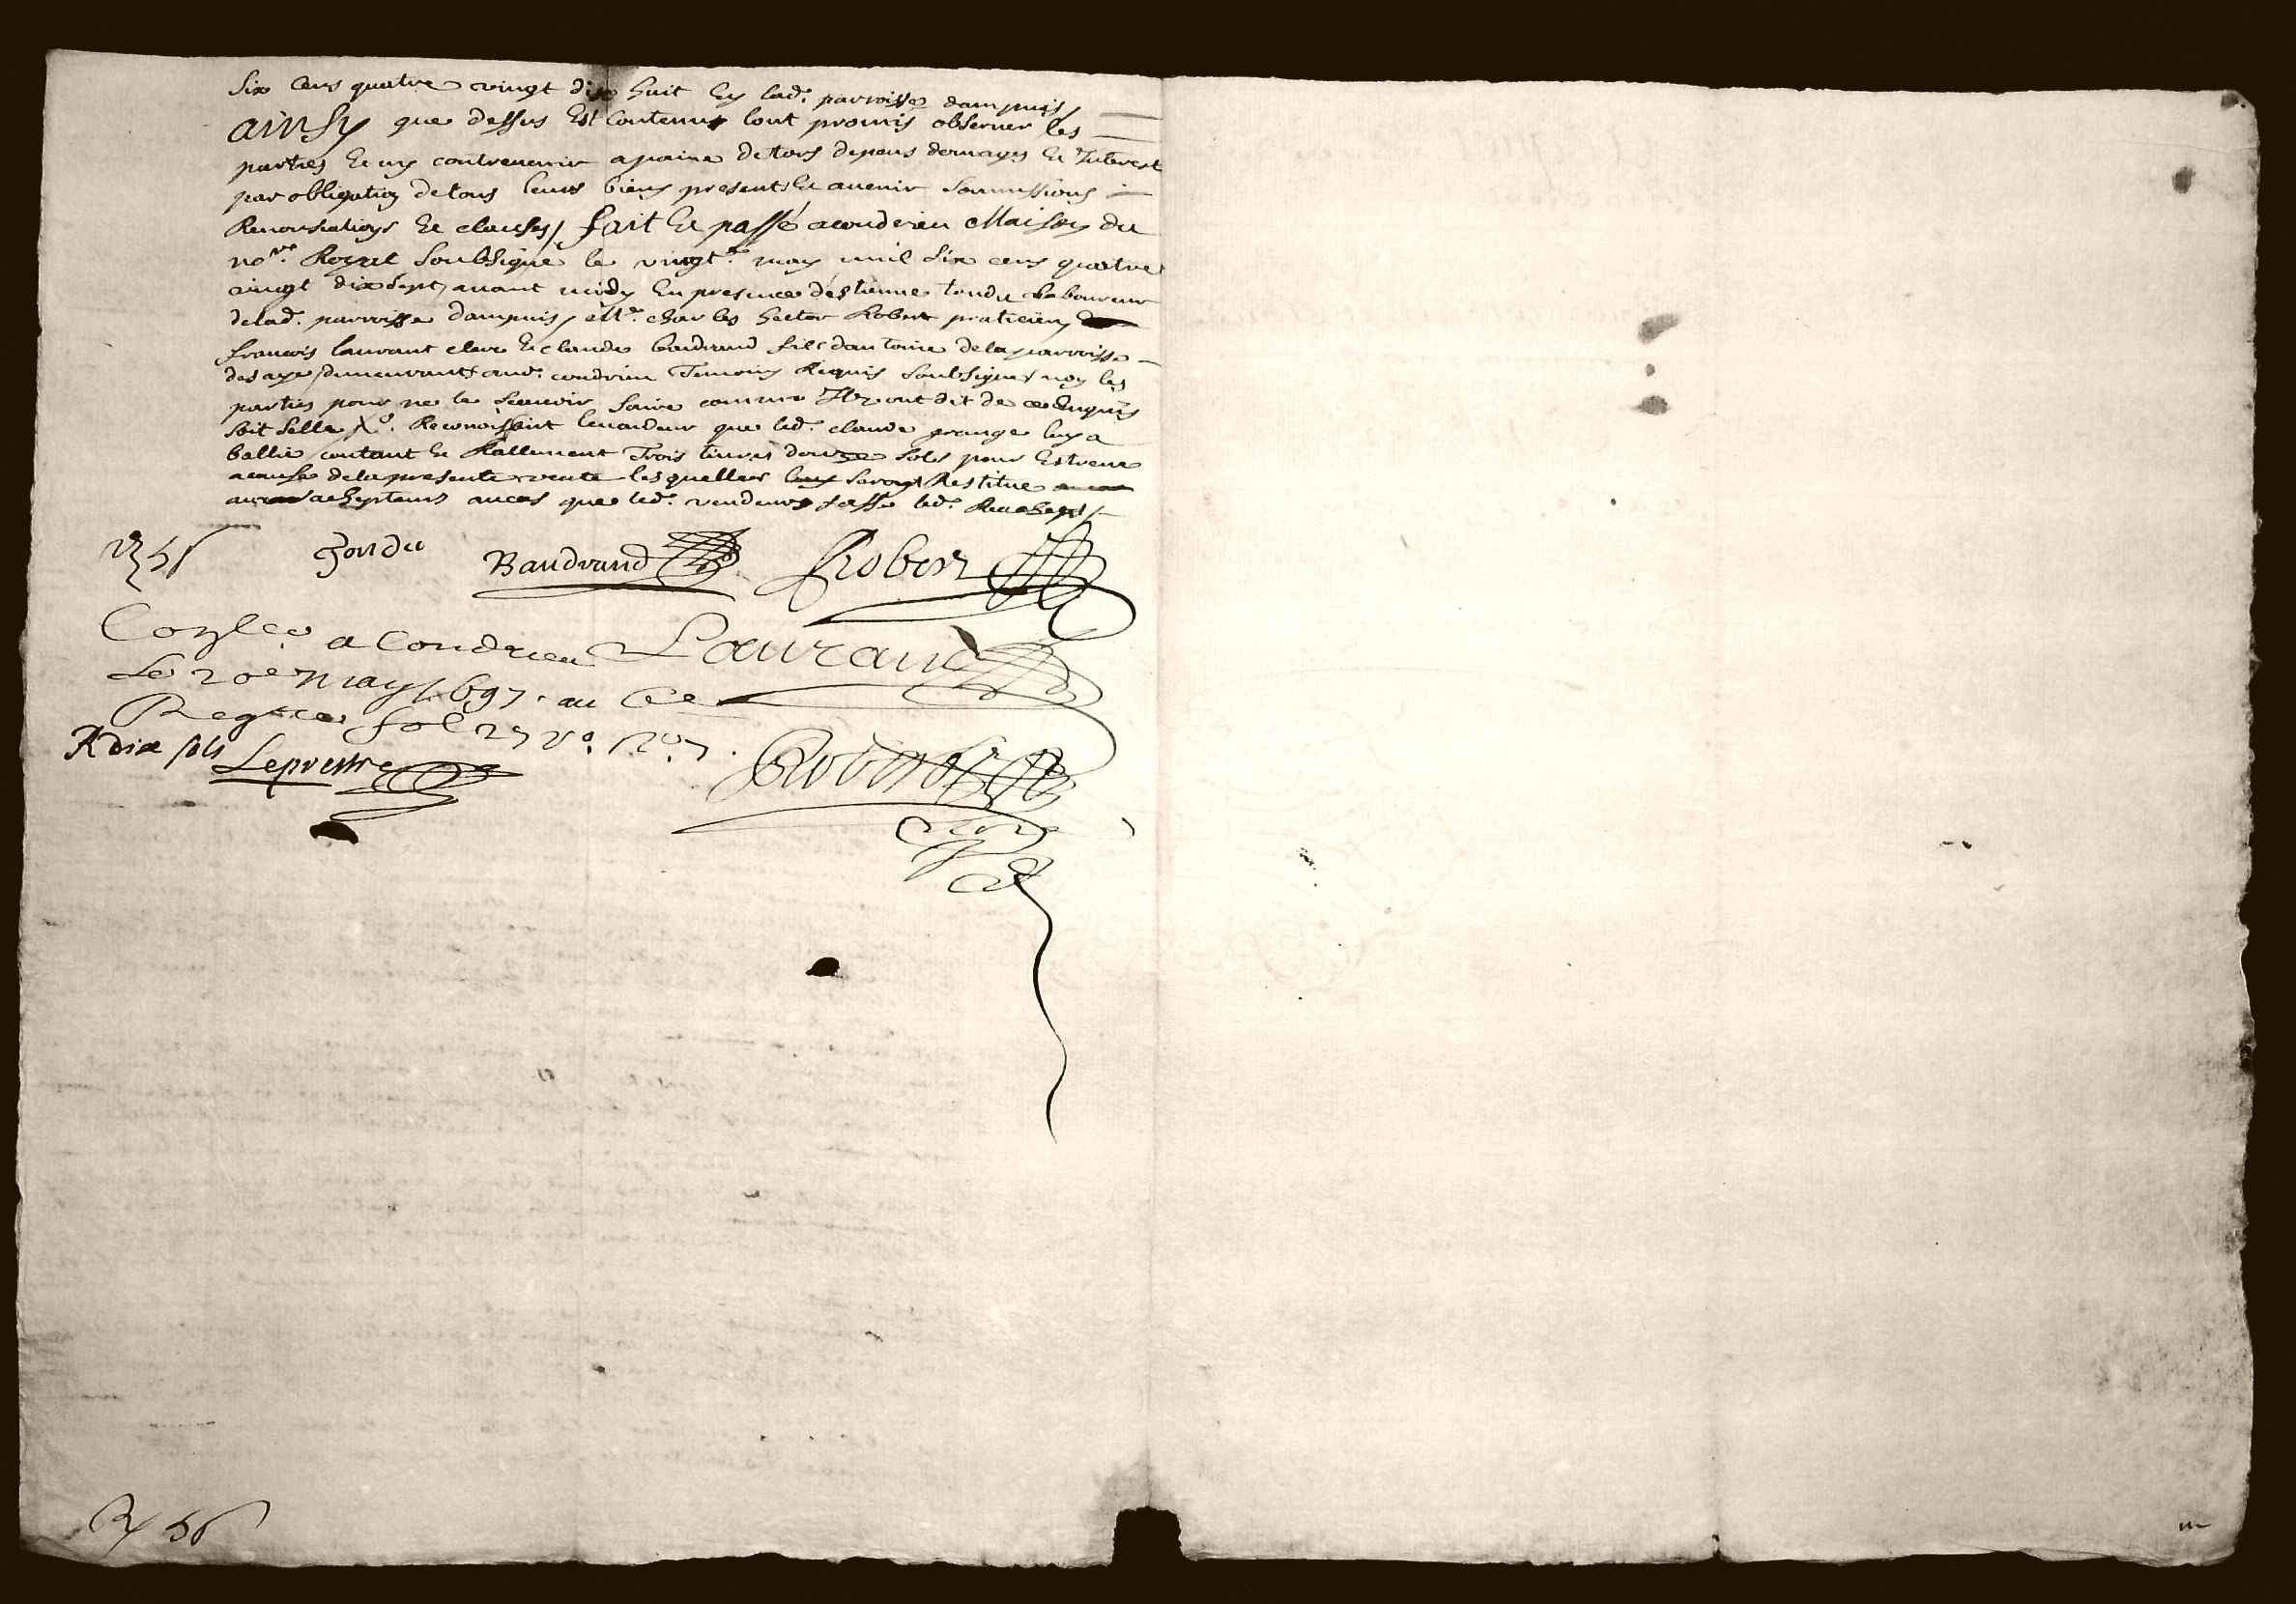 Six cens quatre vingt dix huit En lad. parroisse dampuis /
ainsy que dessus Est Contenu lont promis observer les
parties Et ny contrevenir a paine de tous depens domages Et Interest
par obligation de tous leurs biens presents Et avenir soumissions
Renonsiations Et clauses / fait Et passé a condrieu Maison du
no.re Royal soubsigné le vingt.e may mil six cens quatre
vingt dix sept avant midy En presence d'estienne tondu laboureur
de lad. parroisse dampuis / et M.e charles hector Robert praticien
francois laurant clerc Et claude baudrand fils dantoine de la parroisse
des ayes demeurants aud. condrieu Temoins Requis soubsignes non les
parties pour ne le scavoir faire comme Ils ont dit de ce Enquis
soit sellé Reconoissant le vandeur que led. claude grange luy a
ballié contant Et Rallement Trois livres douze sols pour Estrene
a cause de la presente vente lesquelles seront Restitue
achepteurs au cas que led. vendeur fasse led. Reachept /
56
Tondu
Baudrand
Robert
Con.lee a Condrieu
Laurand
Le 20e may 1697. au
Reg.re fol 27 v.o
R dix sols
Leprestre
R 56